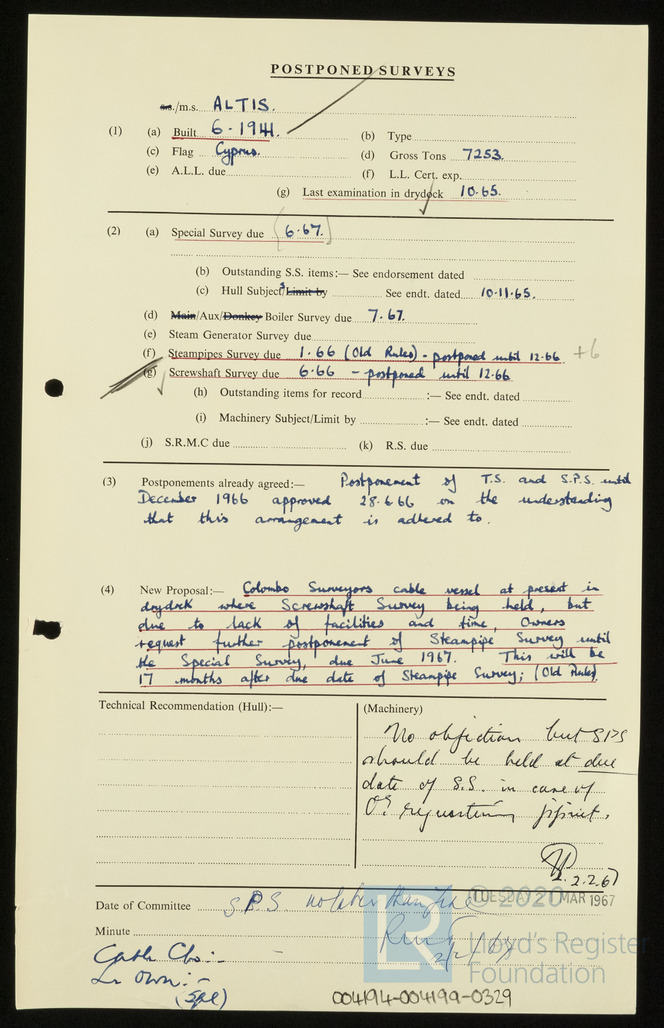 POSTPONED SURVEYS
s.s./m.s. ALTIS.
(1) (a) Built 6-1941. (b) Type
(c) Flag Cyprus. (d) Gross Tons 7253.
(e) A.L.L. due (f) L.L. Cert. exp.
(g) Last examination in drydock 10.65.
(2) (a) Special Survey due (6.67.)
(b) Outstanding S.S. items:— See endorsement dated
(c) Hull Subjects Limit by See endt. dated 10.11.65.
(d) Main/Aux/Donkey Boiler Survey due 7.67.
(e) Steam Generator Survey due
(f) Steampipes Survey due 1.66 (Old Rules) - postponed until 12.66. +6
(g) Screwshaft Survey due 6.66 - postponed until 12.66
(h) Outstanding items for record :— See endt. dated
(i) Machinery Subject/Limit by :— See endt. dated
(j) S.R.M.C due (k) R.S. due
(3) Postponements already agreed:— Postponement of T.S. and S.P.S. until
December 1966 approved 28.6.66 on the understanding
that this arrangement is adhered to.
(4) New Proposal:— Colombo Surveyors cable vessel at present in
drydock where Screwshaft Survey being held, but
due to lack of facilities and time, Owners
request further postponement of Steampipe Survey until
the Special Survey, due June 1967. This will be
17 months after due date of Steampipe Survey; (Old Rules).
Technical Recommendation (Hull):— (Machinery)
No objection but SPS
should be held at due
date of S.S. in case of
Ors requesting ppmt.
2.2.67
Date of Committee TUESDAY MAR 1967
S.P.S no later than June
Minute
Cable Cbo:-
Lr Own:-
(Spl)
© 2020
LR
Lloyd's Register
Foundation
004194-004199-0329